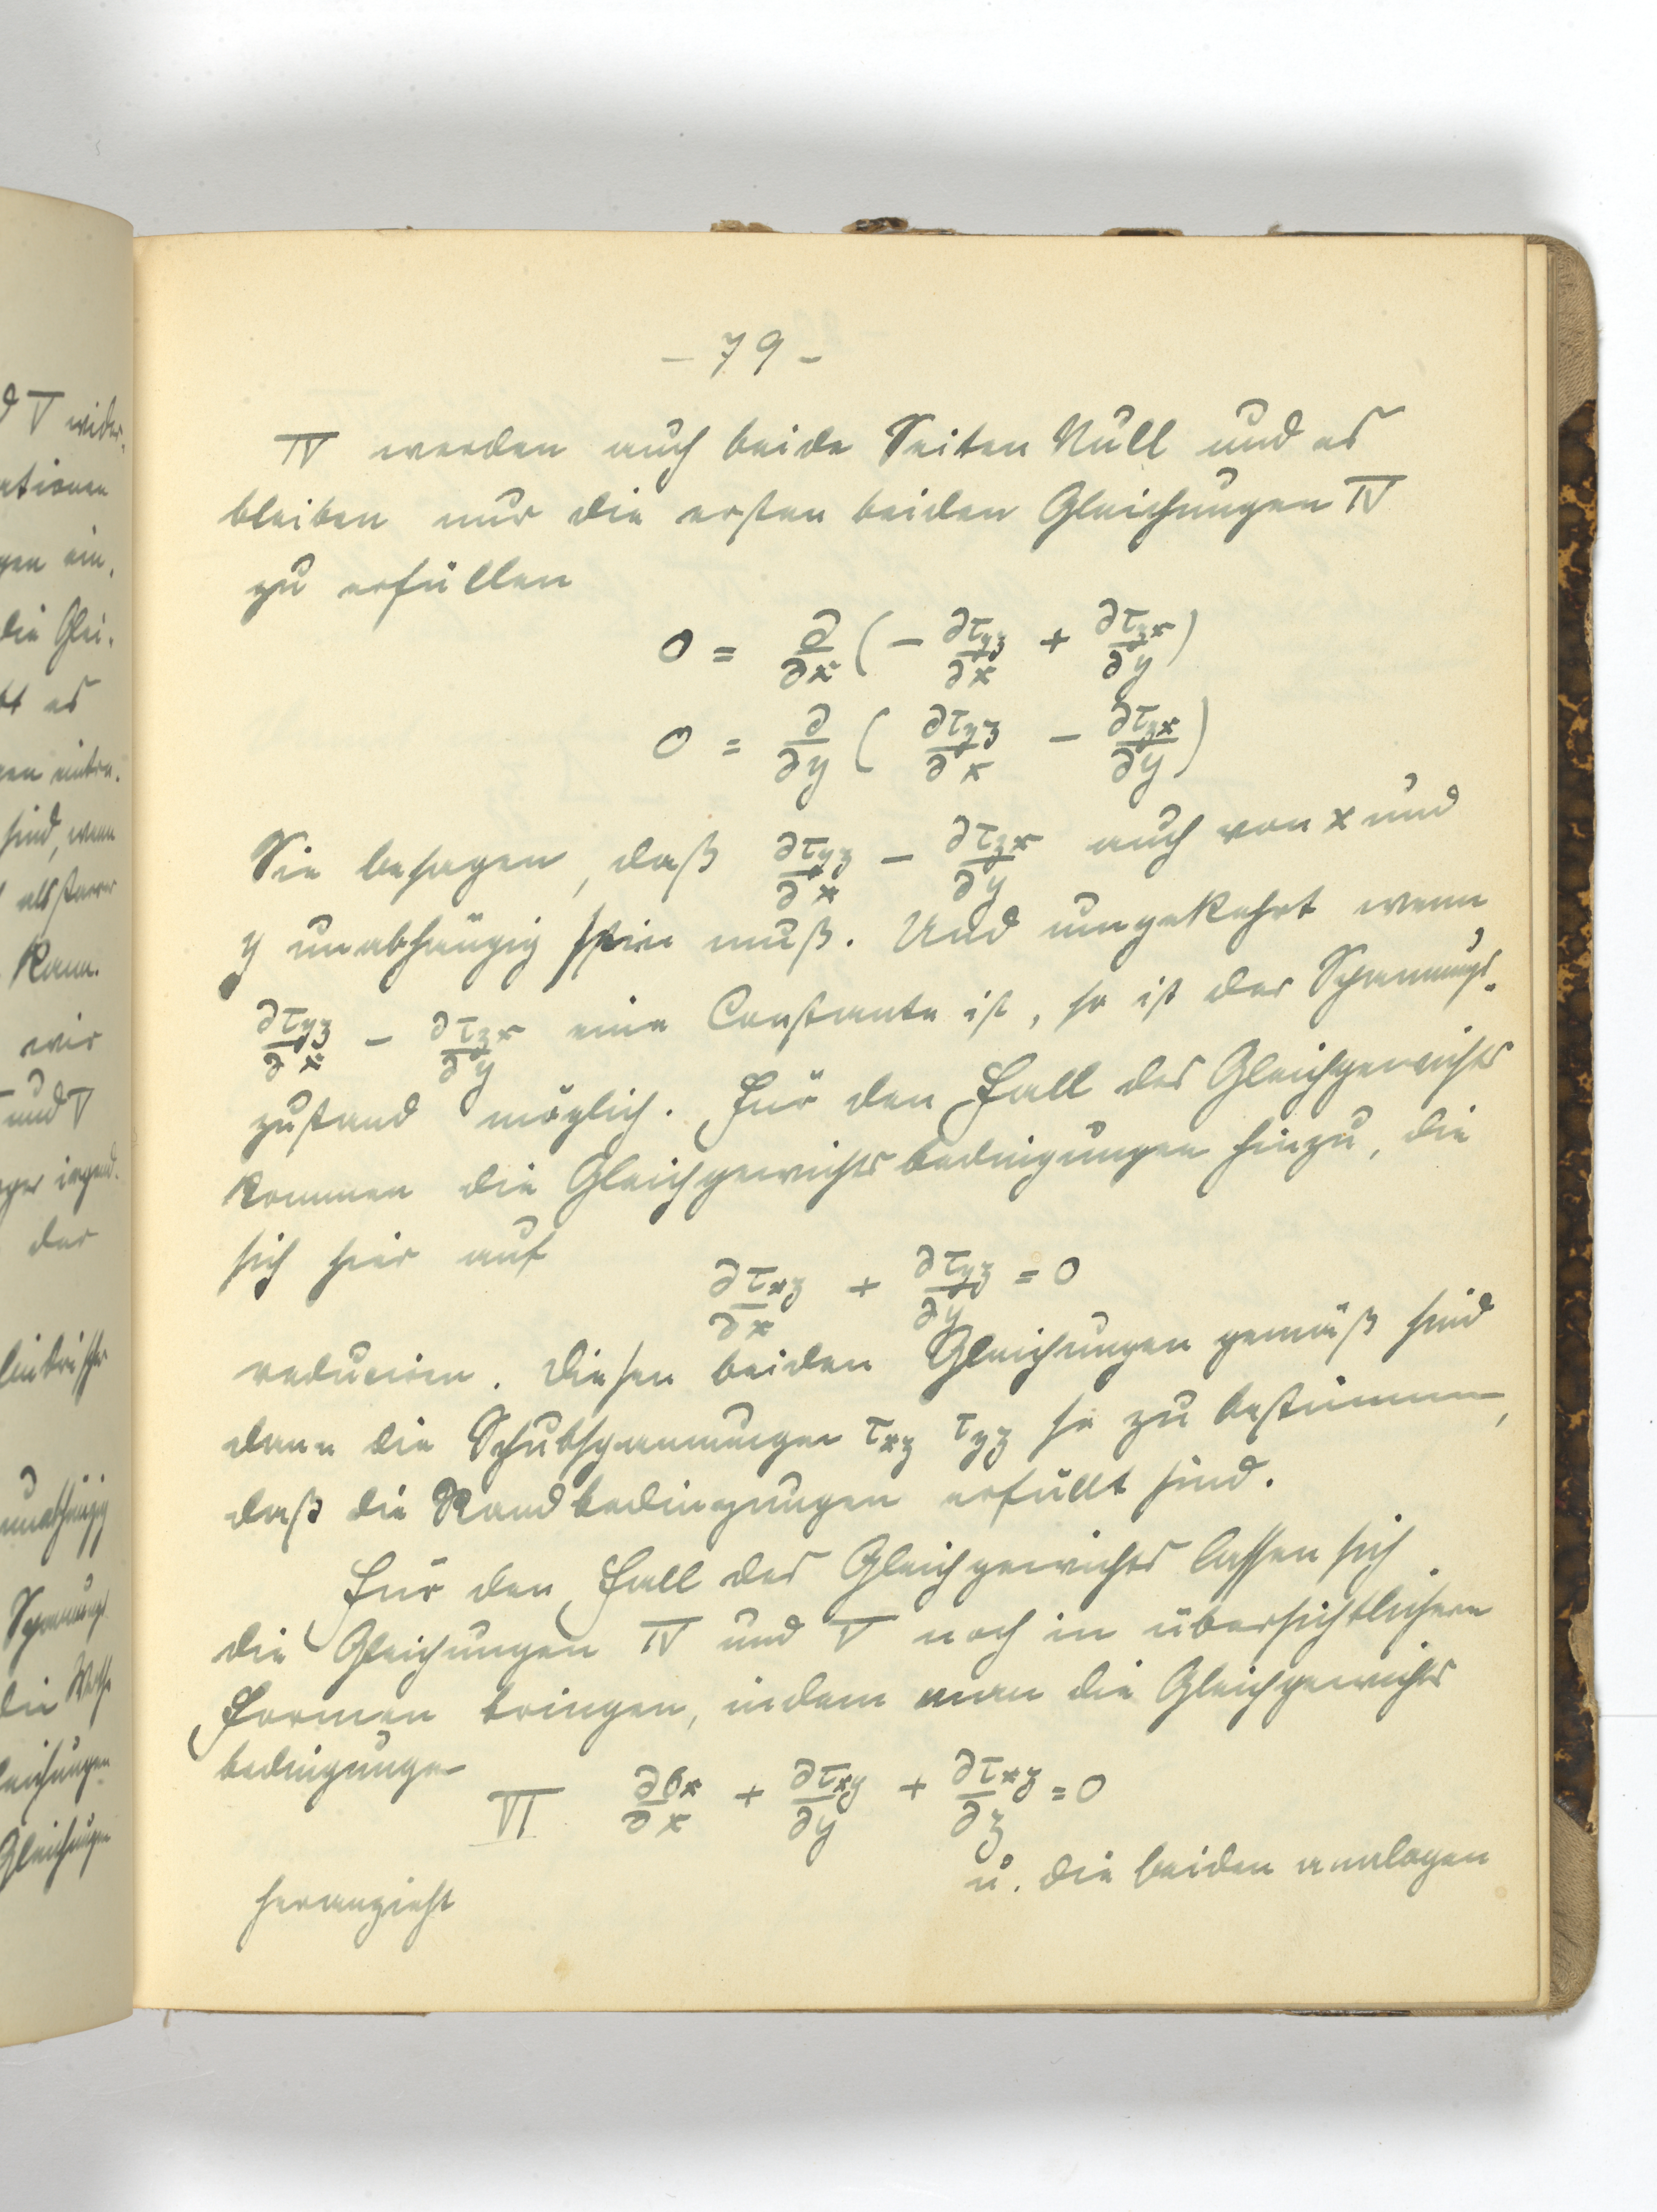 d V wider-
ationen
gen ein,
die Glei-
bt es
gen
sind, wenn
als starrer
kann.
wir
und V
irgend-
der
unabhängig
Spannungs
die
leichungen
Gleichungen
- 79 -
IV werden auch beide Seiten Null und es
bleiben nur die ersten beiden Gleichungen IV
zu erfüllen
0 = ∂/∂x (- ∂τyz/∂x + ∂τzx/∂y)
0 = ∂/∂y ( ∂τyz/∂x - ∂τzx/∂y)
Sie besagen, daß ∂τyz/∂x - ∂τzx/∂y auch von x und
y unabhängig sein muß. Und umgekehrt wenn
∂τyz/∂x - ∂τzx/∂y eine Constante ist, so ist der Spannungs-
zustand möglich. Für den Fall des Gleichgewichts
kommen die Gleichgewichtsbedingungen hinzu, die
sich hier auf
∂τxz/∂x + ∂τyz/∂y = 0
reducieren. Diesen beiden Gleichungen gemäß sind
dann die Schubspannungen τxz τyz so zu bestimmen,
daß die Randbedingungen erfüllt sind.
Für den Fall des Gleichgewichts lassen sich
die Gleichungen IV und V noch in übersichtlichere
Formen bringen, indem man die Gleichgewichts
bedingungen
VI ∂σx/∂x + ∂τxy/∂y + ∂τxz/∂z = 0
u. die beiden analogen
heranzieht